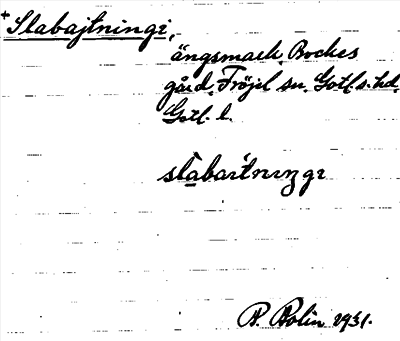 +Slabajtningi,
ängsmark Bockes
gård, Fröjel sn. Gotl. s. hd.
Gotl. l.
slabaitnıŋgɪ
P. Bolin 1931.